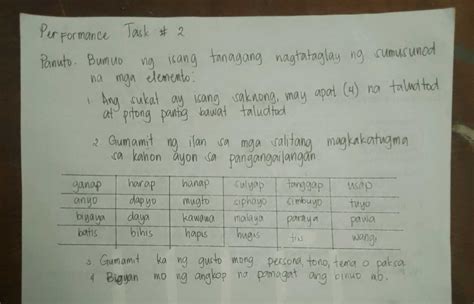 Performance Task # 2
Panuto: Bumuo ng isang tanagang nagtataglay ng sumusunod
na mga elemento:
1. Ang sukat ay isang saknong, may apat (4) na taludtod
at pitong pantig bawat taludtod
2. Gumamit ng ilan sa mga salitang magkakatugma
sa kahon ayon sa pangangailangan
ganap harap hanap sulyap tanggap usap
anyo dapyo mugto siphayo simbuyo tuyo
bigaya daya kawawa malaya paraya pawa
batis bihis hapis hugis tiis wangis
3. Gumamit ka ng gusto mong persona, tono, tema o paksa
4. Bigyan mo ng angkop na pamagat ang binuo